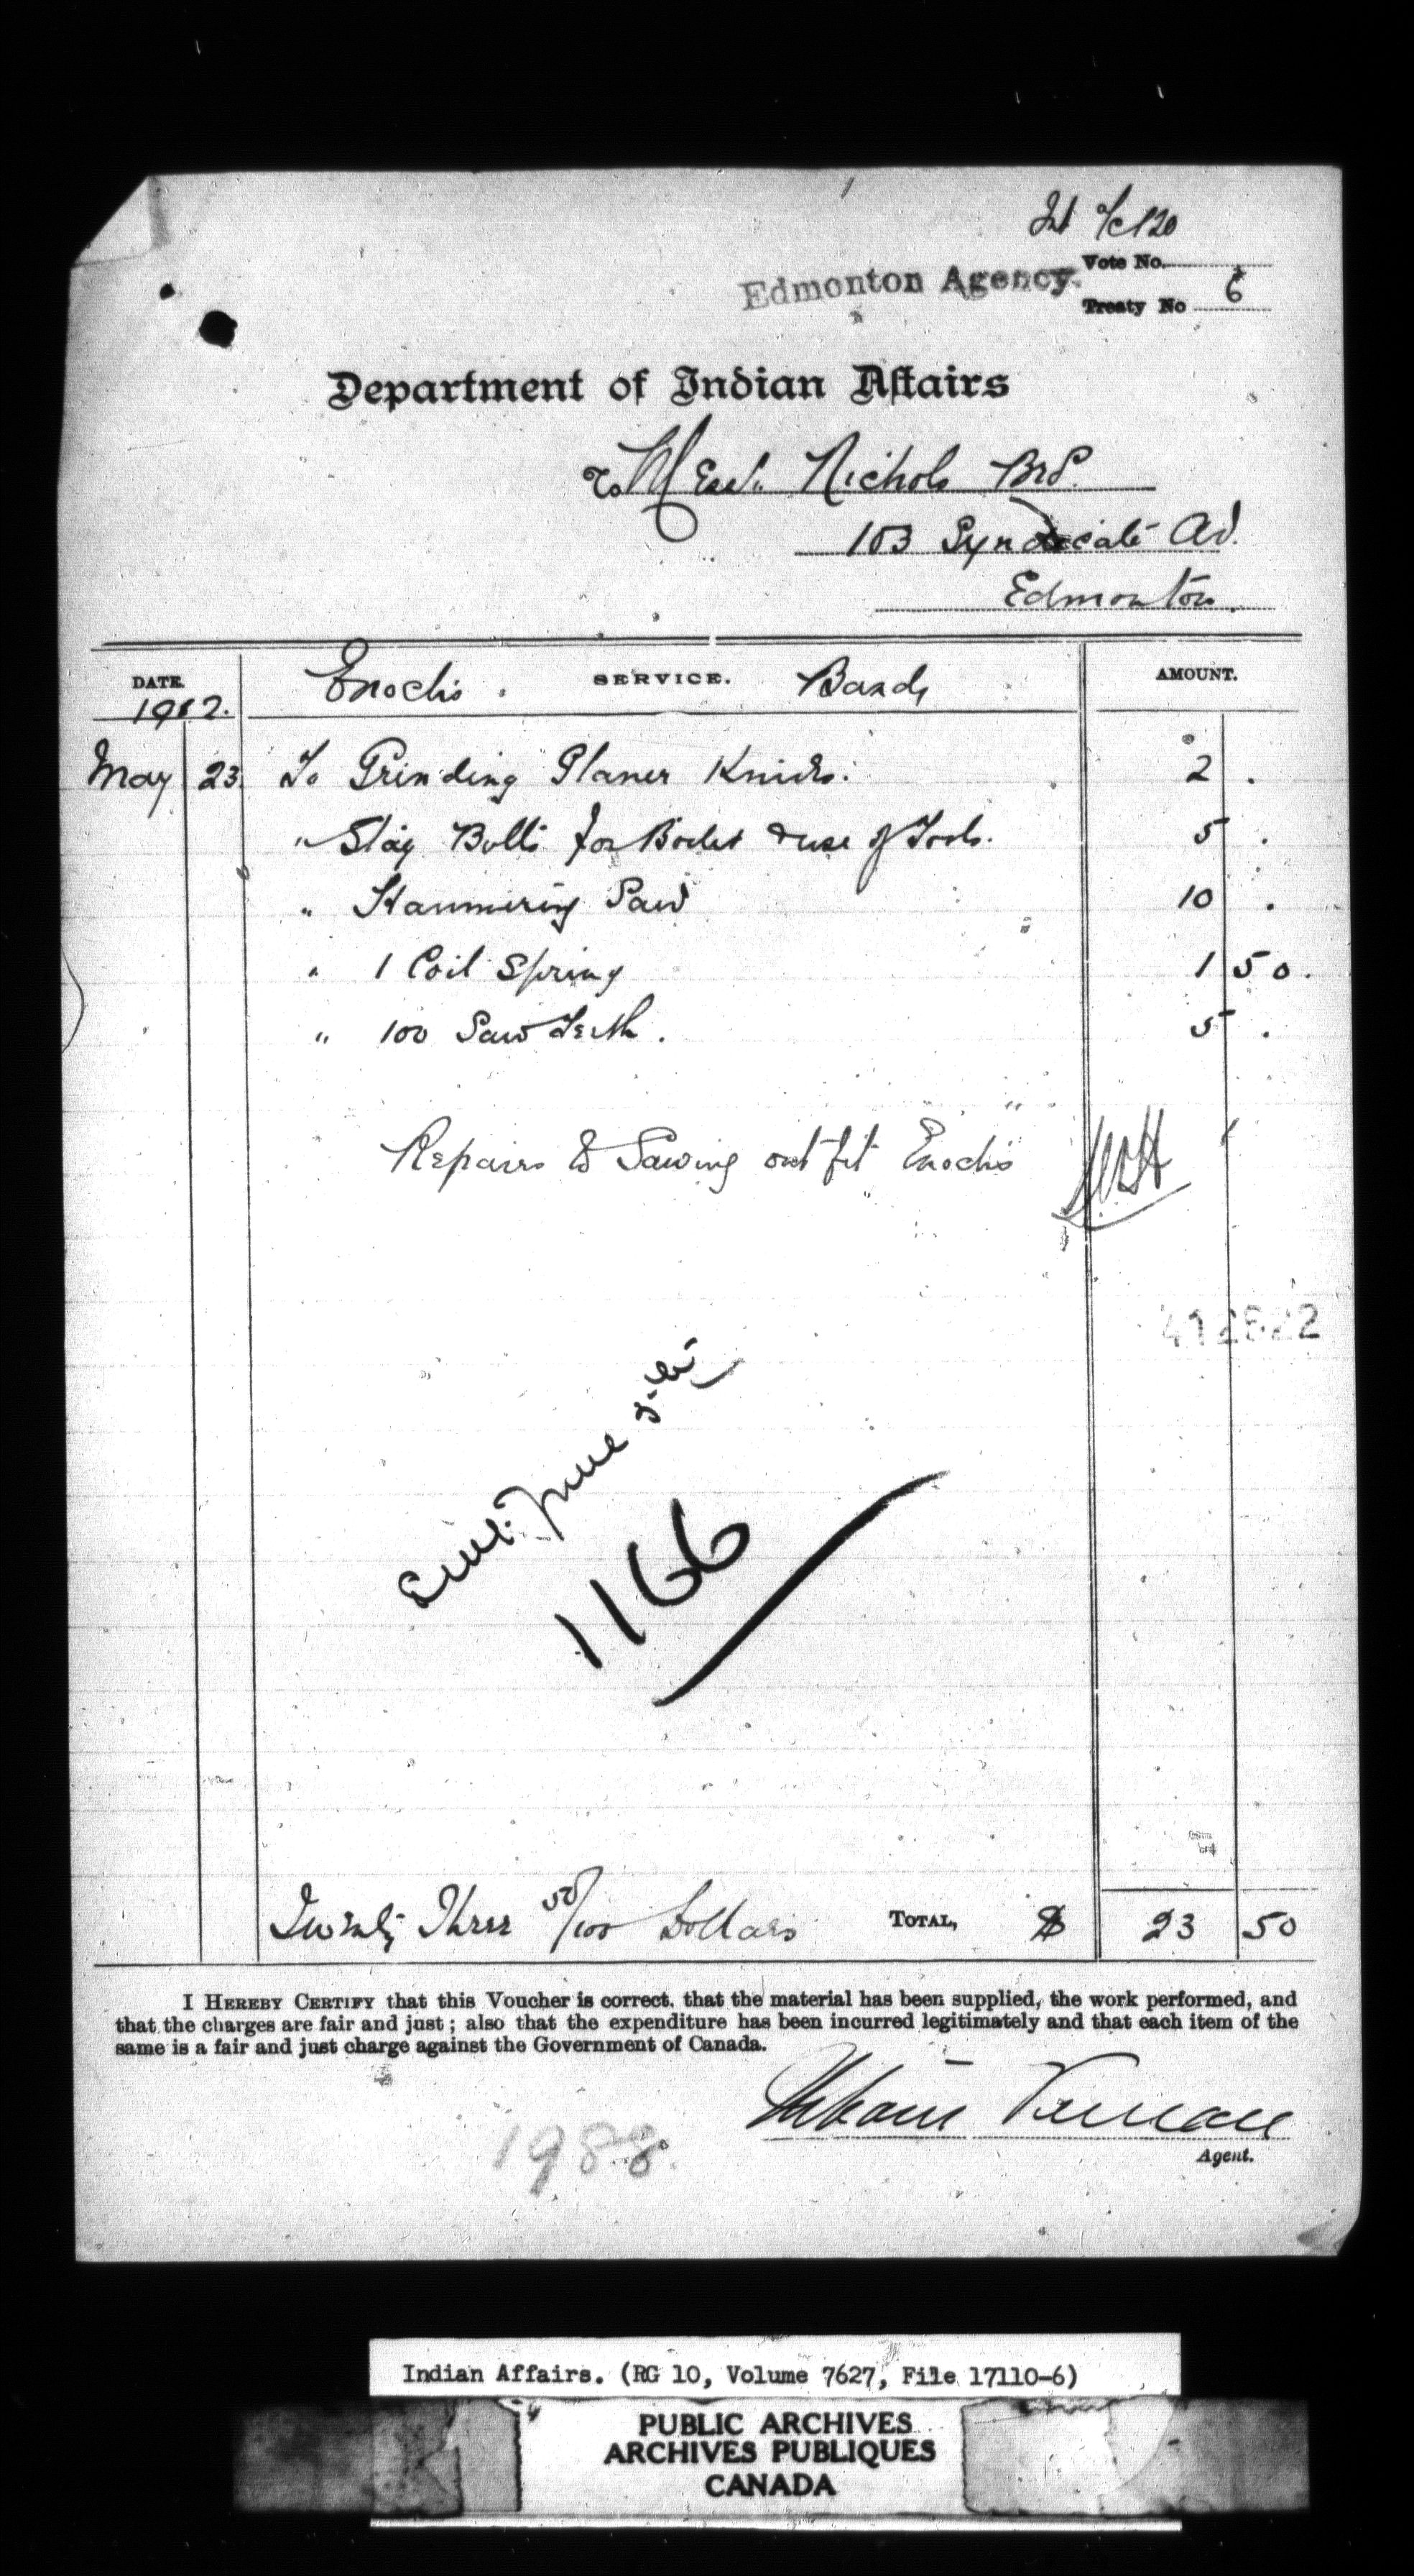 Int a/c 120
Vote No.
Edmonton Agency.
Treaty No 6
Department of Indian Affairs
To Mess. Nichols Bros.
103 Syndicate Av.
Edmonton.
DATE. Enochs. SERVICE. Band AMOUNT.
1912.
May 23 To Grinding Planer Knives. 2 .
" Stay Bolts for Boiler & use of Tools. 5 .
" Hammering Saw 10 .
" 1 Coil Spring 1 50.
" 100 Saw Teeth. 5 .
Repairs to Sawing outfit Enochs
412622
June 5th
1166
Twenty Three 50/100 Dollars TOTAL, $ 23 50
I HEREBY CERTIFY that this Voucher is correct, that the material has been supplied, the work performed, and
that the charges are fair and just; also that the expenditure has been incurred legitimately and that each item of the
same is a fair and just charge against the Government of Canada.
Urbain Verreau
Agent.
1988.
Indian Affairs. (RG 10, Volume 7627, File 17110-6)
PUBLIC ARCHIVES
ARCHIVES PUBLIQUES
CANADA